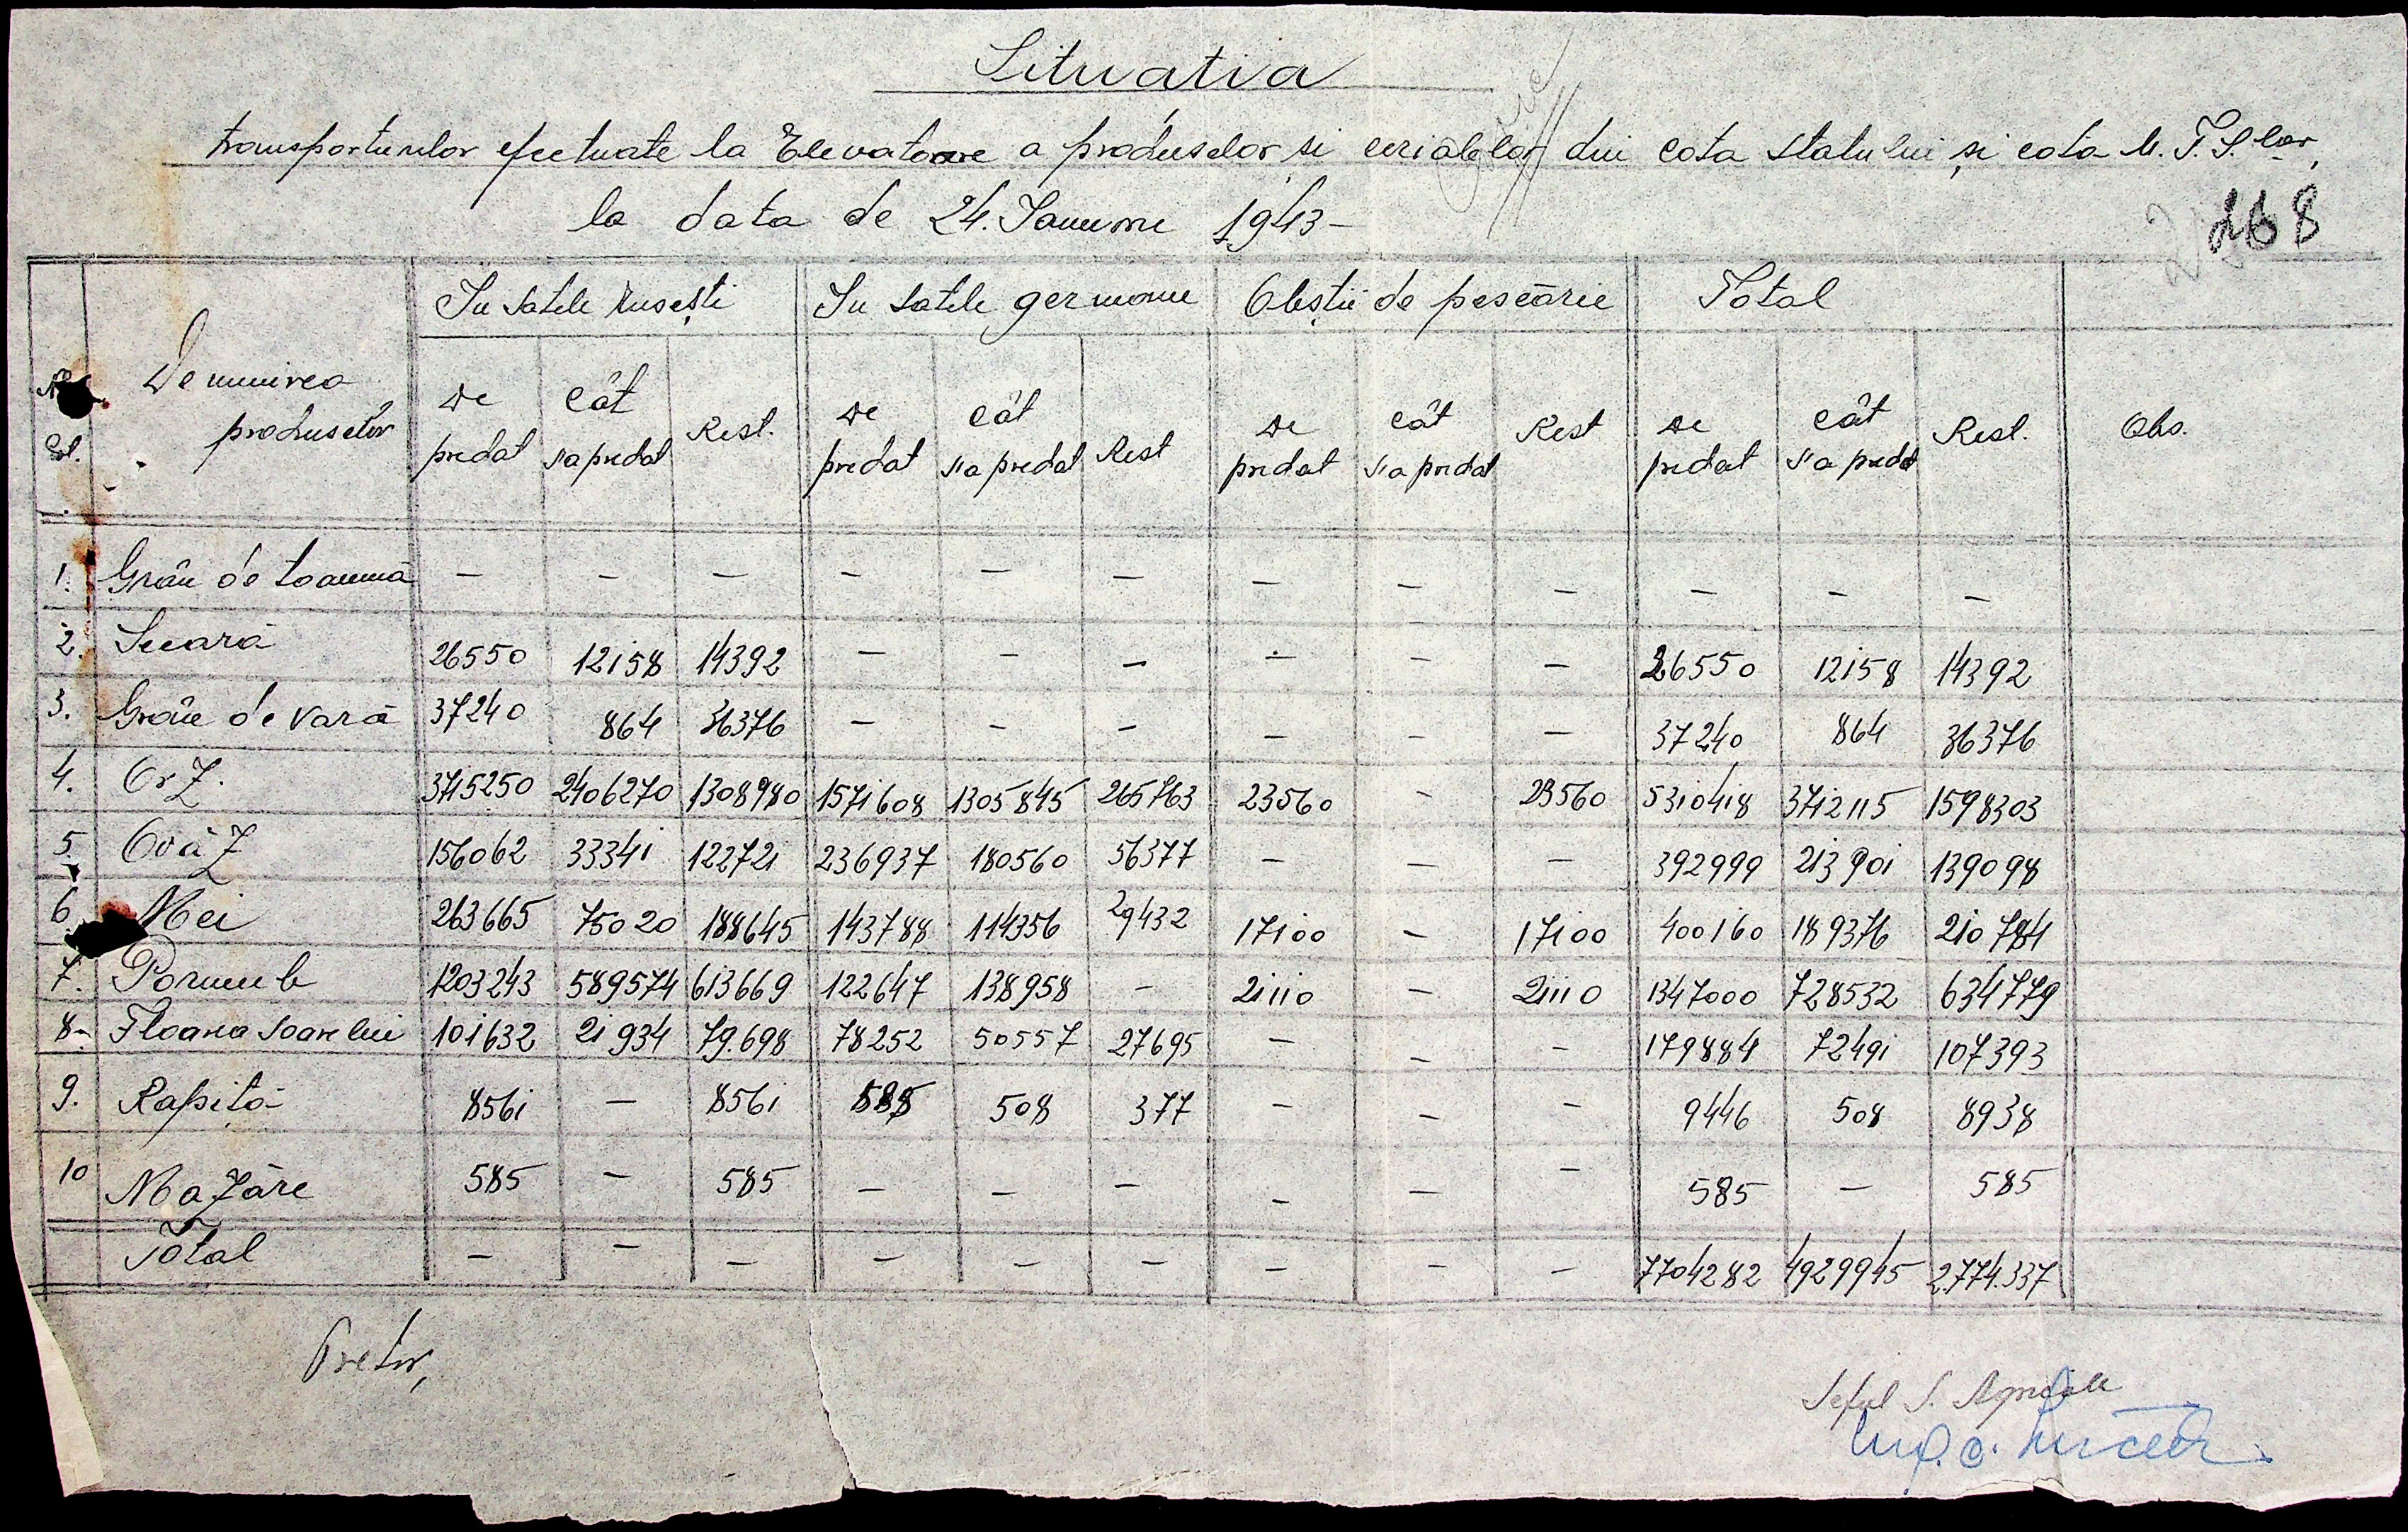 Situatia
transporturilor efectuate la Elevatoare a produselor si cerialelor din cota statului și cota M. T. S. lor,
la data de 24. Ianuarie 1943-
268
Nr. Crt. | Denumirea produselor | In satele rusești | In satele germane | Obștii de pescărie | Total | Obs.
De predat | Cât s'a predat | Rest. | De predat | Cât s'a predat | Rest | De predat | Cât s'a predat | Rest | De predat | Cât s'a predat | Rest.
1. Grâu de toamnă – – – – – – – – – – – –
2. Secară 26550 12158 14392 – – – – – – 26550 12158 14392
3. Grâu de vară 37240 864 36376 – – – – – – 37240 864 36376
4. Orz. 3715250 2406270 1308980 1571608 1305845 265763 23560 – 23560 5310418 3712115 1598303
5. Ovăz 156062 33341 122721 236937 180560 56377 – – – 392999 213901 139098
6. Mei 263665 75020 188645 143788 114356 29432 17100 – 17100 400160 189376 210784
7. Porumb 1203243 589574 613669 122647 138958 – 21110 – 21110 1347000 728532 634779
8- Floarea soarelui 101632 21934 79.698 78252 50557 27695 – – – 179884 72491 107393
9. Rapiță 8561 – 8561 885 508 377 – – – 9446 508 8938
10 Mazăre 585 – 585 – – – – – – 585 – 585
Total – – – – – – – – – 7704282 4929945 2.774.337
Pretor,
Seful S. Agricole
Ing. C.